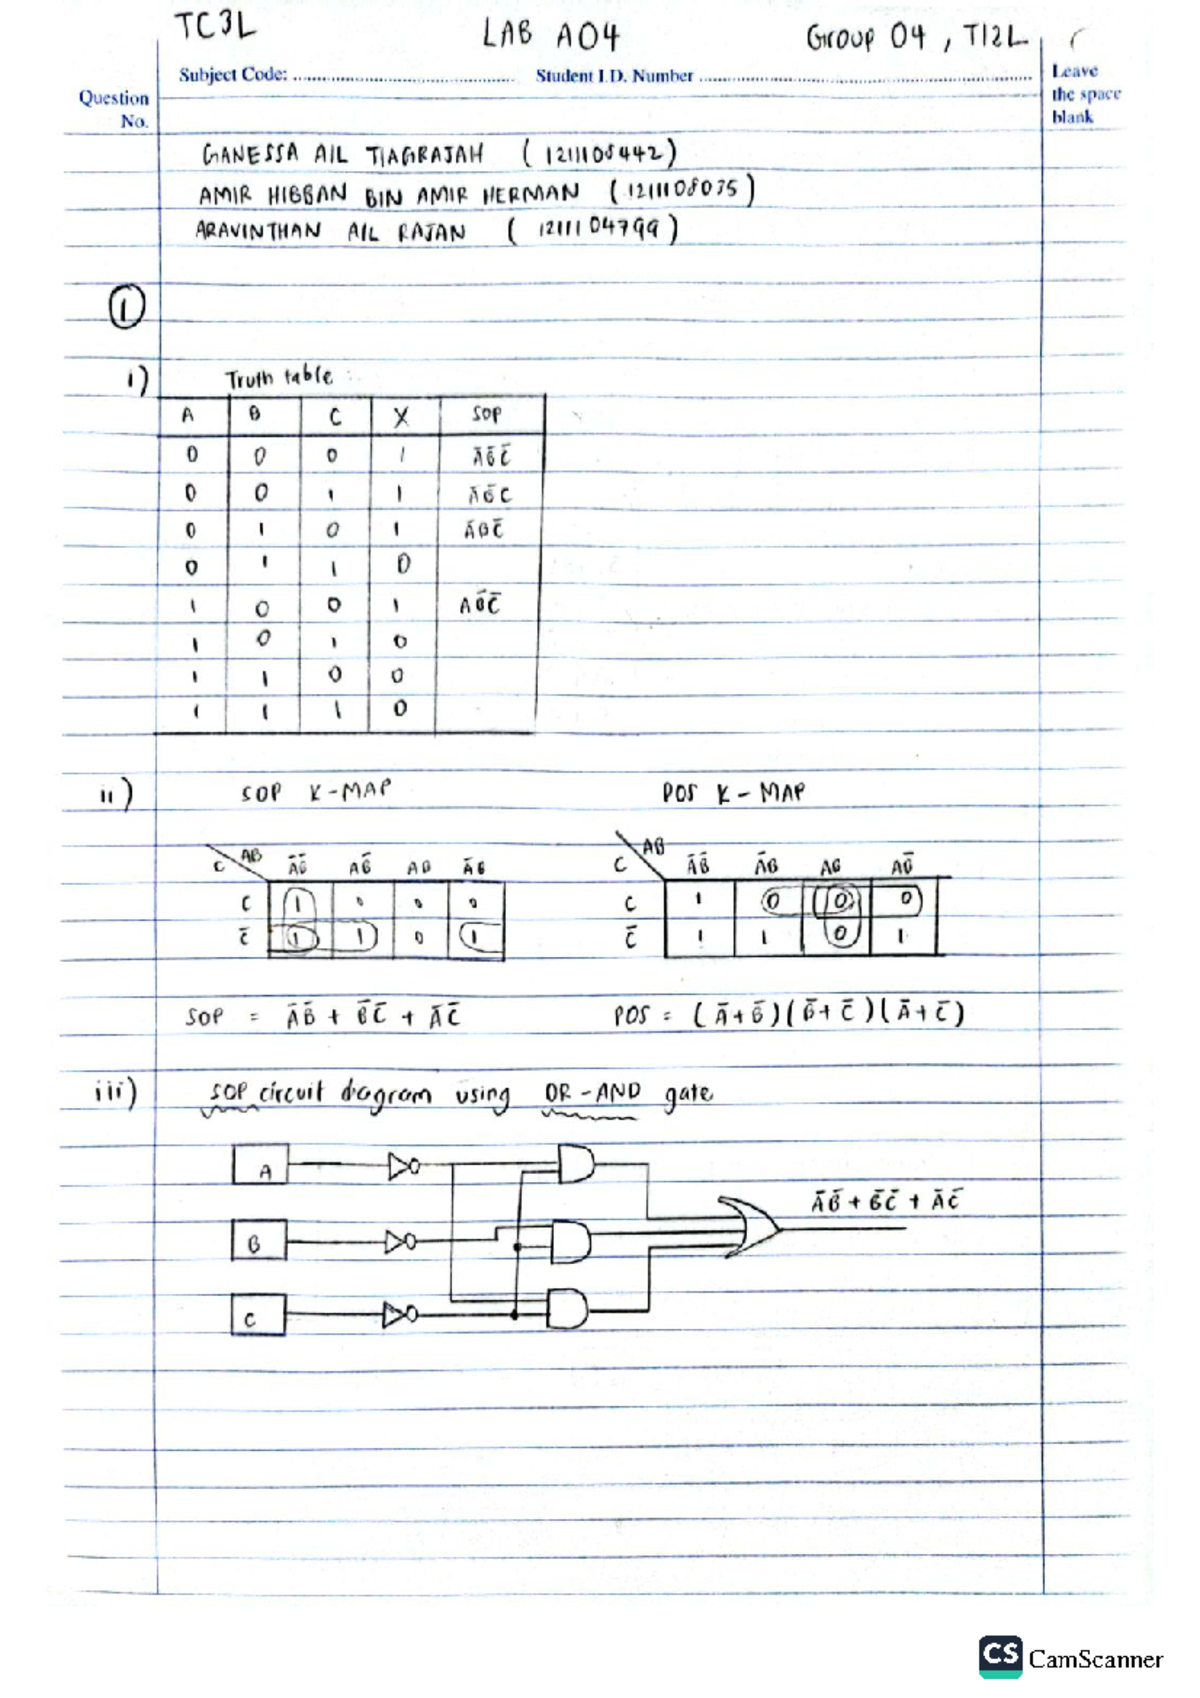 TC3L LAB A04 Group 04, T12L
Subject Code: Student I.D. Number Leave the space blank
Question No.
GANESSA A/L TIAGRAJAH (1211108442)
AMIR HIBBAN BIN AMIR HERMAN (1211108035)
ARAVINTHAN A/L RAJAN (1211104799)
1
i) Truth table :
A B C X SOP
0 0 0 1 A̅B̅C̅
0 0 1 1 A̅B̅C
0 1 0 1 A̅BC̅
0 1 1 0
1 0 0 1 AB̅C̅
1 0 1 0
1 1 0 0
1 1 1 0
ii) SOP K-MAP POS K-MAP
C AB A̅B̅ AB̅ AB A̅B C AB A̅B̅ A̅B AB AB̅
C 1 0 0 0 C 1 0 0 0
C̅ 1 1 0 1 C̅ 1 1 0 1
SOP = A̅B̅ + B̅C̅ + A̅C̅ POS = (A̅+B̅)(B̅+C̅)(A̅+C̅)
iii) SOP circuit diagram using OR-AND gate
A
A̅B̅ + B̅C̅ + A̅C̅
B
C
CS CamScanner